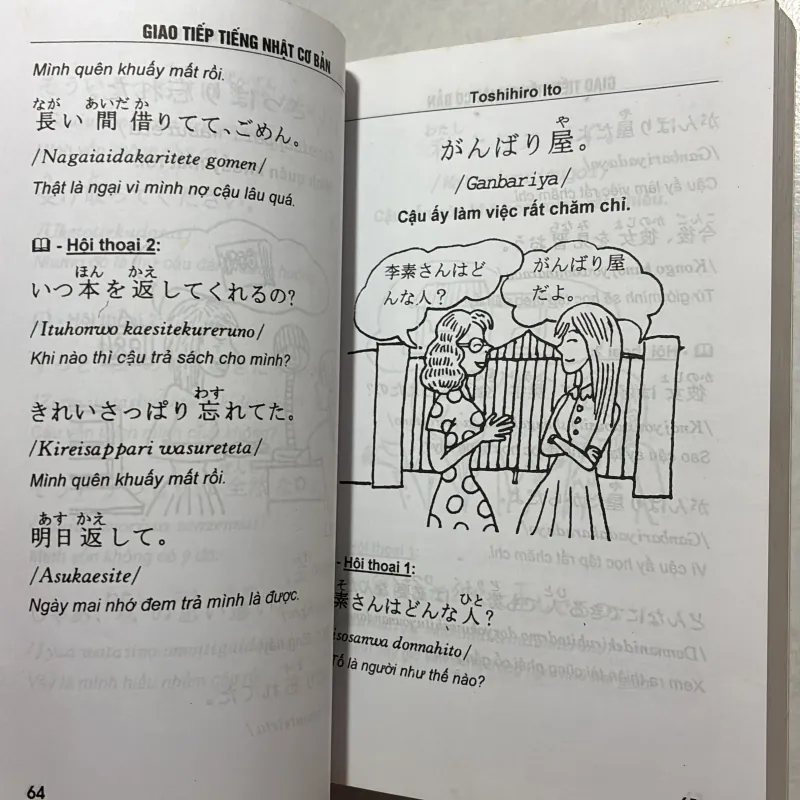 GIAO TIẾP TIẾNG NHẬT CƠ BẢN
Mình quên khuấy mất rồi.
なが あいだ か
長い間借りてて、ごめん。
/Nagaiaidakaritete gomen/
Thật là ngại vì mình nợ cậu lâu quá.
- Hội thoại 2:
ほん かえ
いつ本を返してくれるの?
/Ituhonwo kaesitekureruno/
Khi nào thì cậu trả sách cho mình?
わす
きれいさっぱり忘れてた。
/Kireisappari wasureteta/
Mình quên khuấy mất rồi.
あす かえ
明日返して。
/Asukaesite/
Ngày mai nhớ đem trả mình là được.
64
Toshihiro Ito
や
がんばり屋。
/Ganbariya/
Cậu ấy làm việc rất chăm chỉ.
李素さんはど
んな人?
がんばり屋
だよ。
- Hội thoại 1:
そ ひと
素さんはどんな人?
isosanwa donnahito/
Tố là người như thế nào?